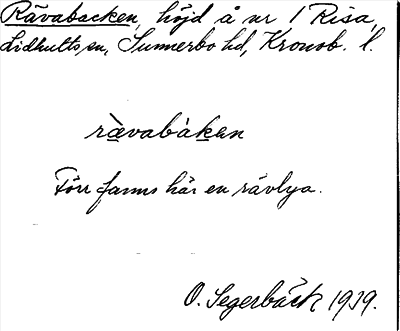 Rävabacken, höjd å nr 1 Risa,
Lidhults sn, Sunnerbo hd, Kronob. l.
rävabàkan
Förr fanns här en rävlya.
O. Segerbäck 1939.